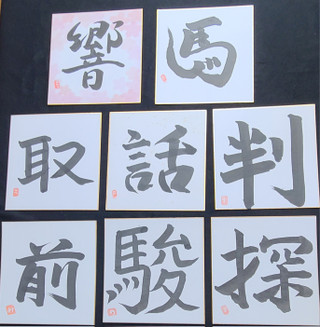 響 馬
取 話 判
前 駿 探